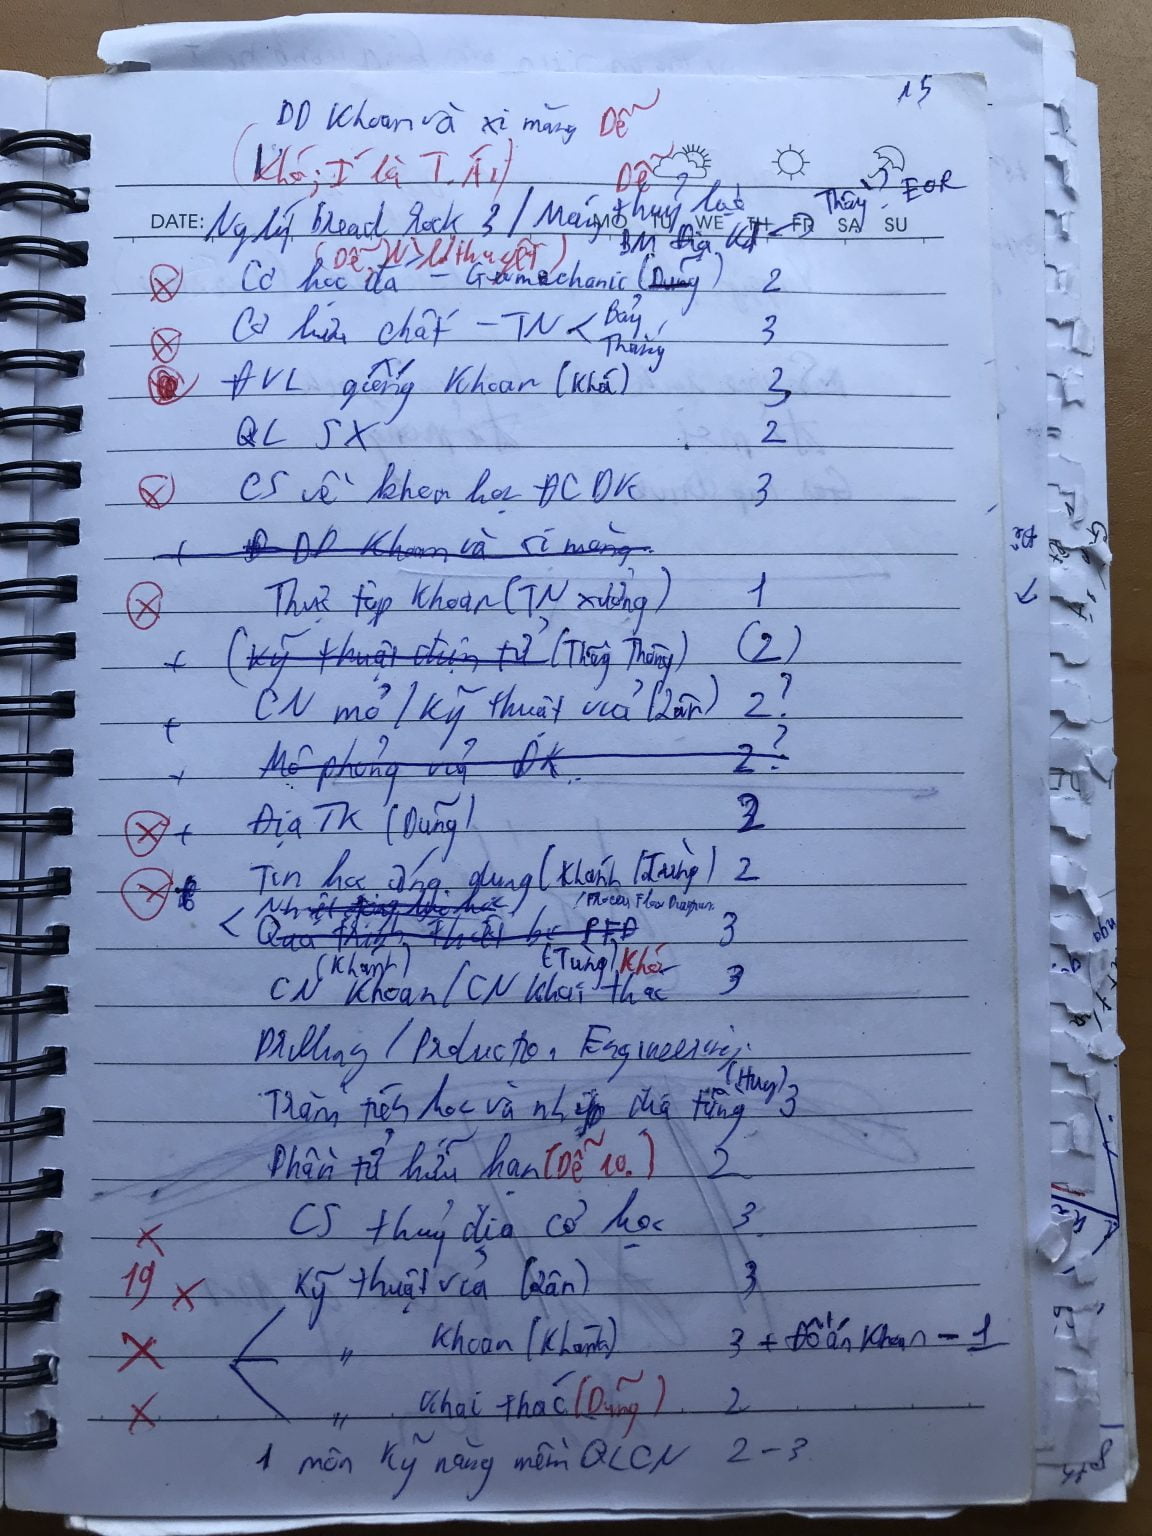 15
DD Khoan và xi măng Dễ
(Khó, Í là T. Á)
Dễ
DATE: MO TU WE TH FR SA SU
Thầy EOR
Ng lý bread rock 3 / Máy thuỷ lực
BM Địa
(Dễ, lí thuyết)
Cơ học đá - Geomechanic (Dũng) 2
Cơ lưu chất - TN < Bảy 3
Thắng
ĐVL giếng khoan (Khá) 3
QL SX 2
CS về khoa học ĐCDK 3
+ DD Khoan và xi măng
Thực tập khoan (TN xưởng) 1
+ (Kỹ thuật điện tử (Thầy Thông) (2)
+ CN mỏ / Kỹ thuật vỉa (Lân) 2?
+ Mô phỏng vỉa DK 2?
+ Địa TK (Dũng) 2
Tin học ứng dụng (Khánh / Trường) 2
< Nhiệt động lực học / Process Flow Diagram
Quá trình thiết bị PFD 3
(Khánh) (Tùng) Khó
CN Khoan / CN Khai thác 3
Drilling / Production Engineering
Trầm tích học và nhịp địa tầng (Huy) 3
Phần tử hữu hạn (Dễ 10.) 2
CS thuỷ địa cơ học 3
19 Kỹ thuật vỉa (Lân) 3
" Khoan (Khánh) 3 + Đồ án Khoan - 1
" Khai thác (Dũng) 2
1 môn Kỹ năng mềm QLCN 2 - 3